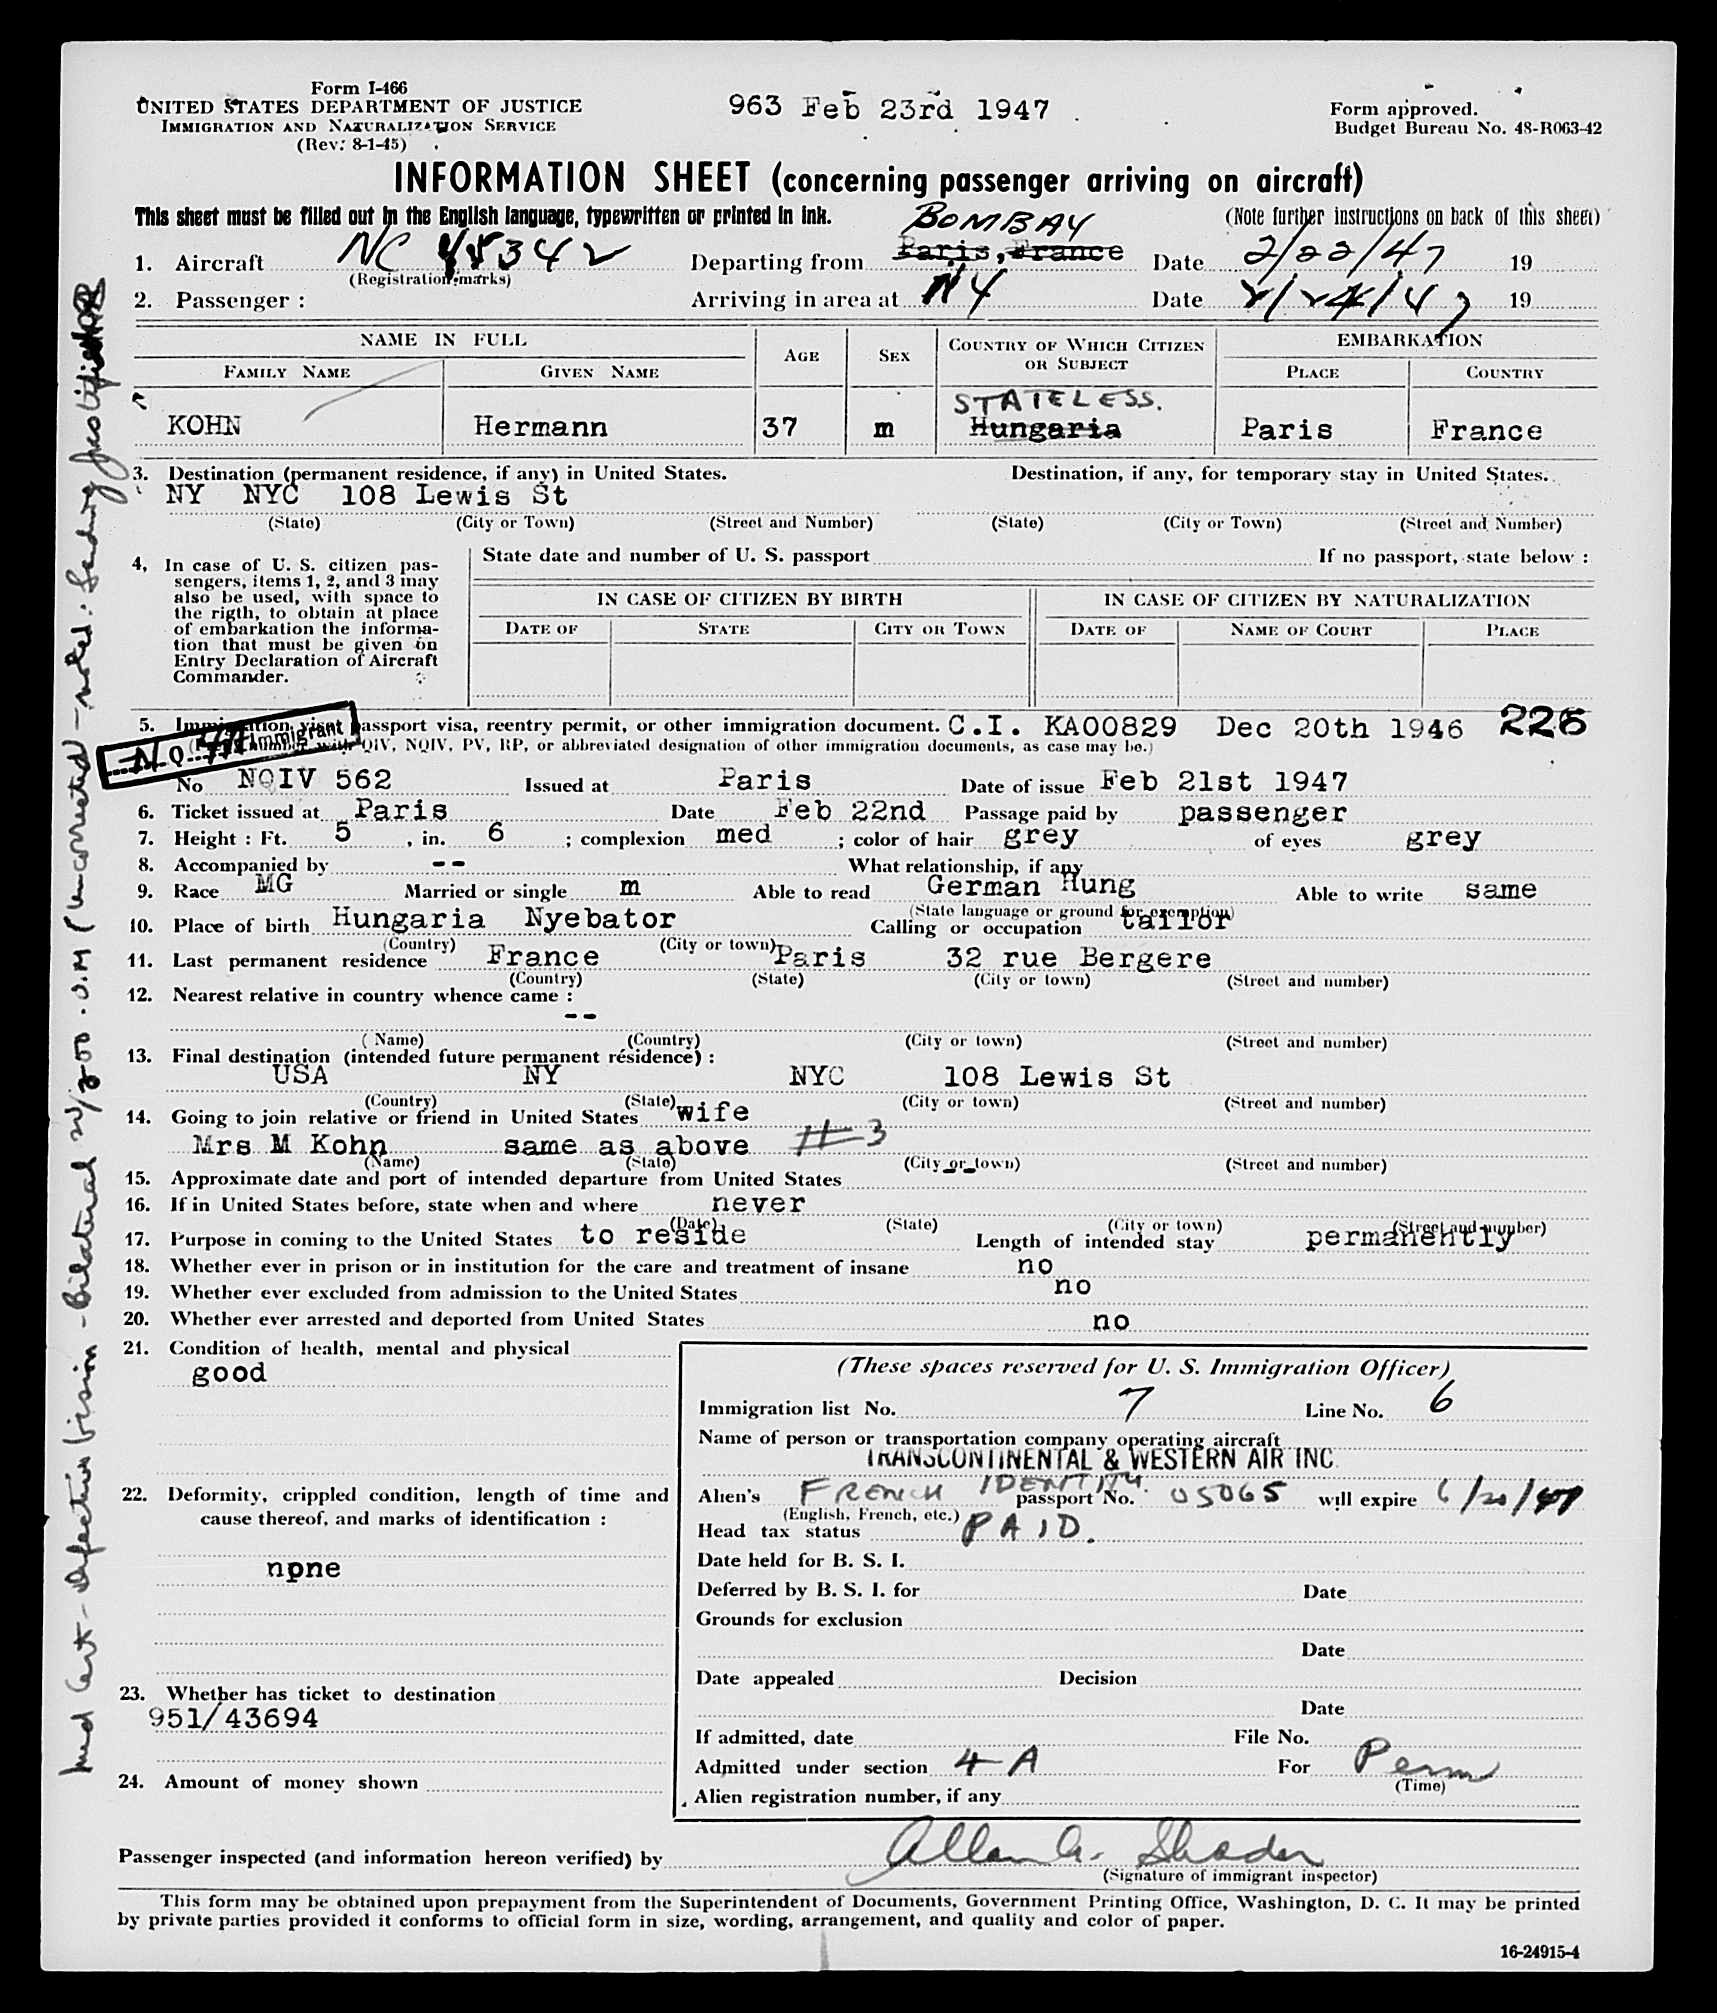 Form I-466
UNITED STATES DEPARTMENT OF JUSTICE
IMMIGRATION AND NATURALIZATION SERVICE
(Rev. 8-1-45)
963 Feb 23rd 1947
Form approved.
Budget Bureau No. 48-R063-42
INFORMATION SHEET (concerning passenger arriving on aircraft)
This sheet must be filled out in the English language, typewritten or printed in ink.
(Note further instructions on back of this sheet)
BOMBAY
1. Aircraft NC 45342 Departing from Paris, France Date 2/22/47 19
(Registration marks)
2. Passenger : Arriving in area at NY Date 2/24/47 19
NAME IN FULL AGE SEX COUNTRY OF WHICH CITIZEN OR SUBJECT EMBARKATION
FAMILY NAME GIVEN NAME PLACE COUNTRY
STATELESS.
KOHN Hermann 37 m Hungaria Paris France
3. Destination (permanent residence, if any) in United States. Destination, if any, for temporary stay in United States.
NY NYC 108 Lewis St
(State) (City or Town) (Street and Number) (State) (City or Town) (Street and Number)
4, In case of U. S. citizen pas-
sengers, items 1, 2, and 3 may
also be used, with space to
the rigth, to obtain at place
of embarkation the informa-
tion that must be given on
Entry Declaration of Aircraft
Commander.
State date and number of U. S. passport If no passport, state below :
IN CASE OF CITIZEN BY BIRTH IN CASE OF CITIZEN BY NATURALIZATION
DATE OF STATE CITY OR TOWN DATE OF NAME OF COURT PLACE
5. Immigration visa, passport visa, reentry permit, or other immigration document. C.I. KA00829 Dec 20th 1946 226
QIV, NQIV, PV, RP, or abbreviated designation of other immigration documents, as case may be.)
Immigrant
No NQIV 562 Issued at Paris Date of issue Feb 21st 1947
6. Ticket issued at Paris Date Feb 22nd Passage paid by passenger
7. Height : Ft. 5 , in. 6 ; complexion med ; color of hair grey of eyes grey
8. Accompanied by -- What relationship, if any
9. Race MG Married or single m Able to read German Hung Able to write same
(State language or ground for exemption)
10. Place of birth Hungaria Nyebator Calling or occupation tailor
(Country) (City or town)
11. Last permanent residence France Paris 32 rue Bergere
(Country) (State) (City or town) (Street and number)
12. Nearest relative in country whence came :
--
( Name) (Country) (City or town) (Street and number)
13. Final destination (intended future permanent résidence) :
USA NY NYC 108 Lewis St
(Country) (State) (City or town) (Street and number)
14. Going to join relative or friend in United States wife
Mrs M Kohn same as above #3
(Name) (State) (City or town) (Street and number)
15. Approximate date and port of intended departure from United States
16. If in United States before, state when and where never
(Date) (State) (City or town) (Street and number)
17. Purpose in coming to the United States to reside Length of intended stay permanently
18. Whether ever in prison or in institution for the care and treatment of insane no
19. Whether ever excluded from admission to the United States no
20. Whether ever arrested and deported from United States no
21. Condition of health, mental and physical
good
22. Deformity, crippled condition, length of time and
cause thereof, and marks of identification :
npne
23. Whether has ticket to destination
951/43694
24. Amount of money shown
(These spaces reserved for U. S. Immigration Officer)
Immigration list No. 7 Line No. 6
Name of person or transportation company operating aircraft
TRANSCONTINENTAL & WESTERN AIR INC.
Alien's FRENCH IDENTITY. passport No. 05065 will expire 6/20/47
(English, French, etc.)
Head tax status PAID.
Date held for B. S. I.
Deferred by B. S. I. for Date
Grounds for exclusion
Date
Date appealed Decision
Date
If admitted, date File No.
Admitted under section 4-A For Perm
(Time)
Alien registration number, if any
Passenger inspected (and information hereon verified) by Allan A. Shader
(Signature of immigrant inspector)
This form may be obtained upon prepayment from the Superintendent of Documents, Government Printing Office, Washington, D. C. It may be printed
by private parties provided it conforms to official form in size, wording, arrangement, and quality and color of paper.
16-24915-4
Med Cert - defective vision - bilateral 20/200 O.U. (uncorrected - noted.